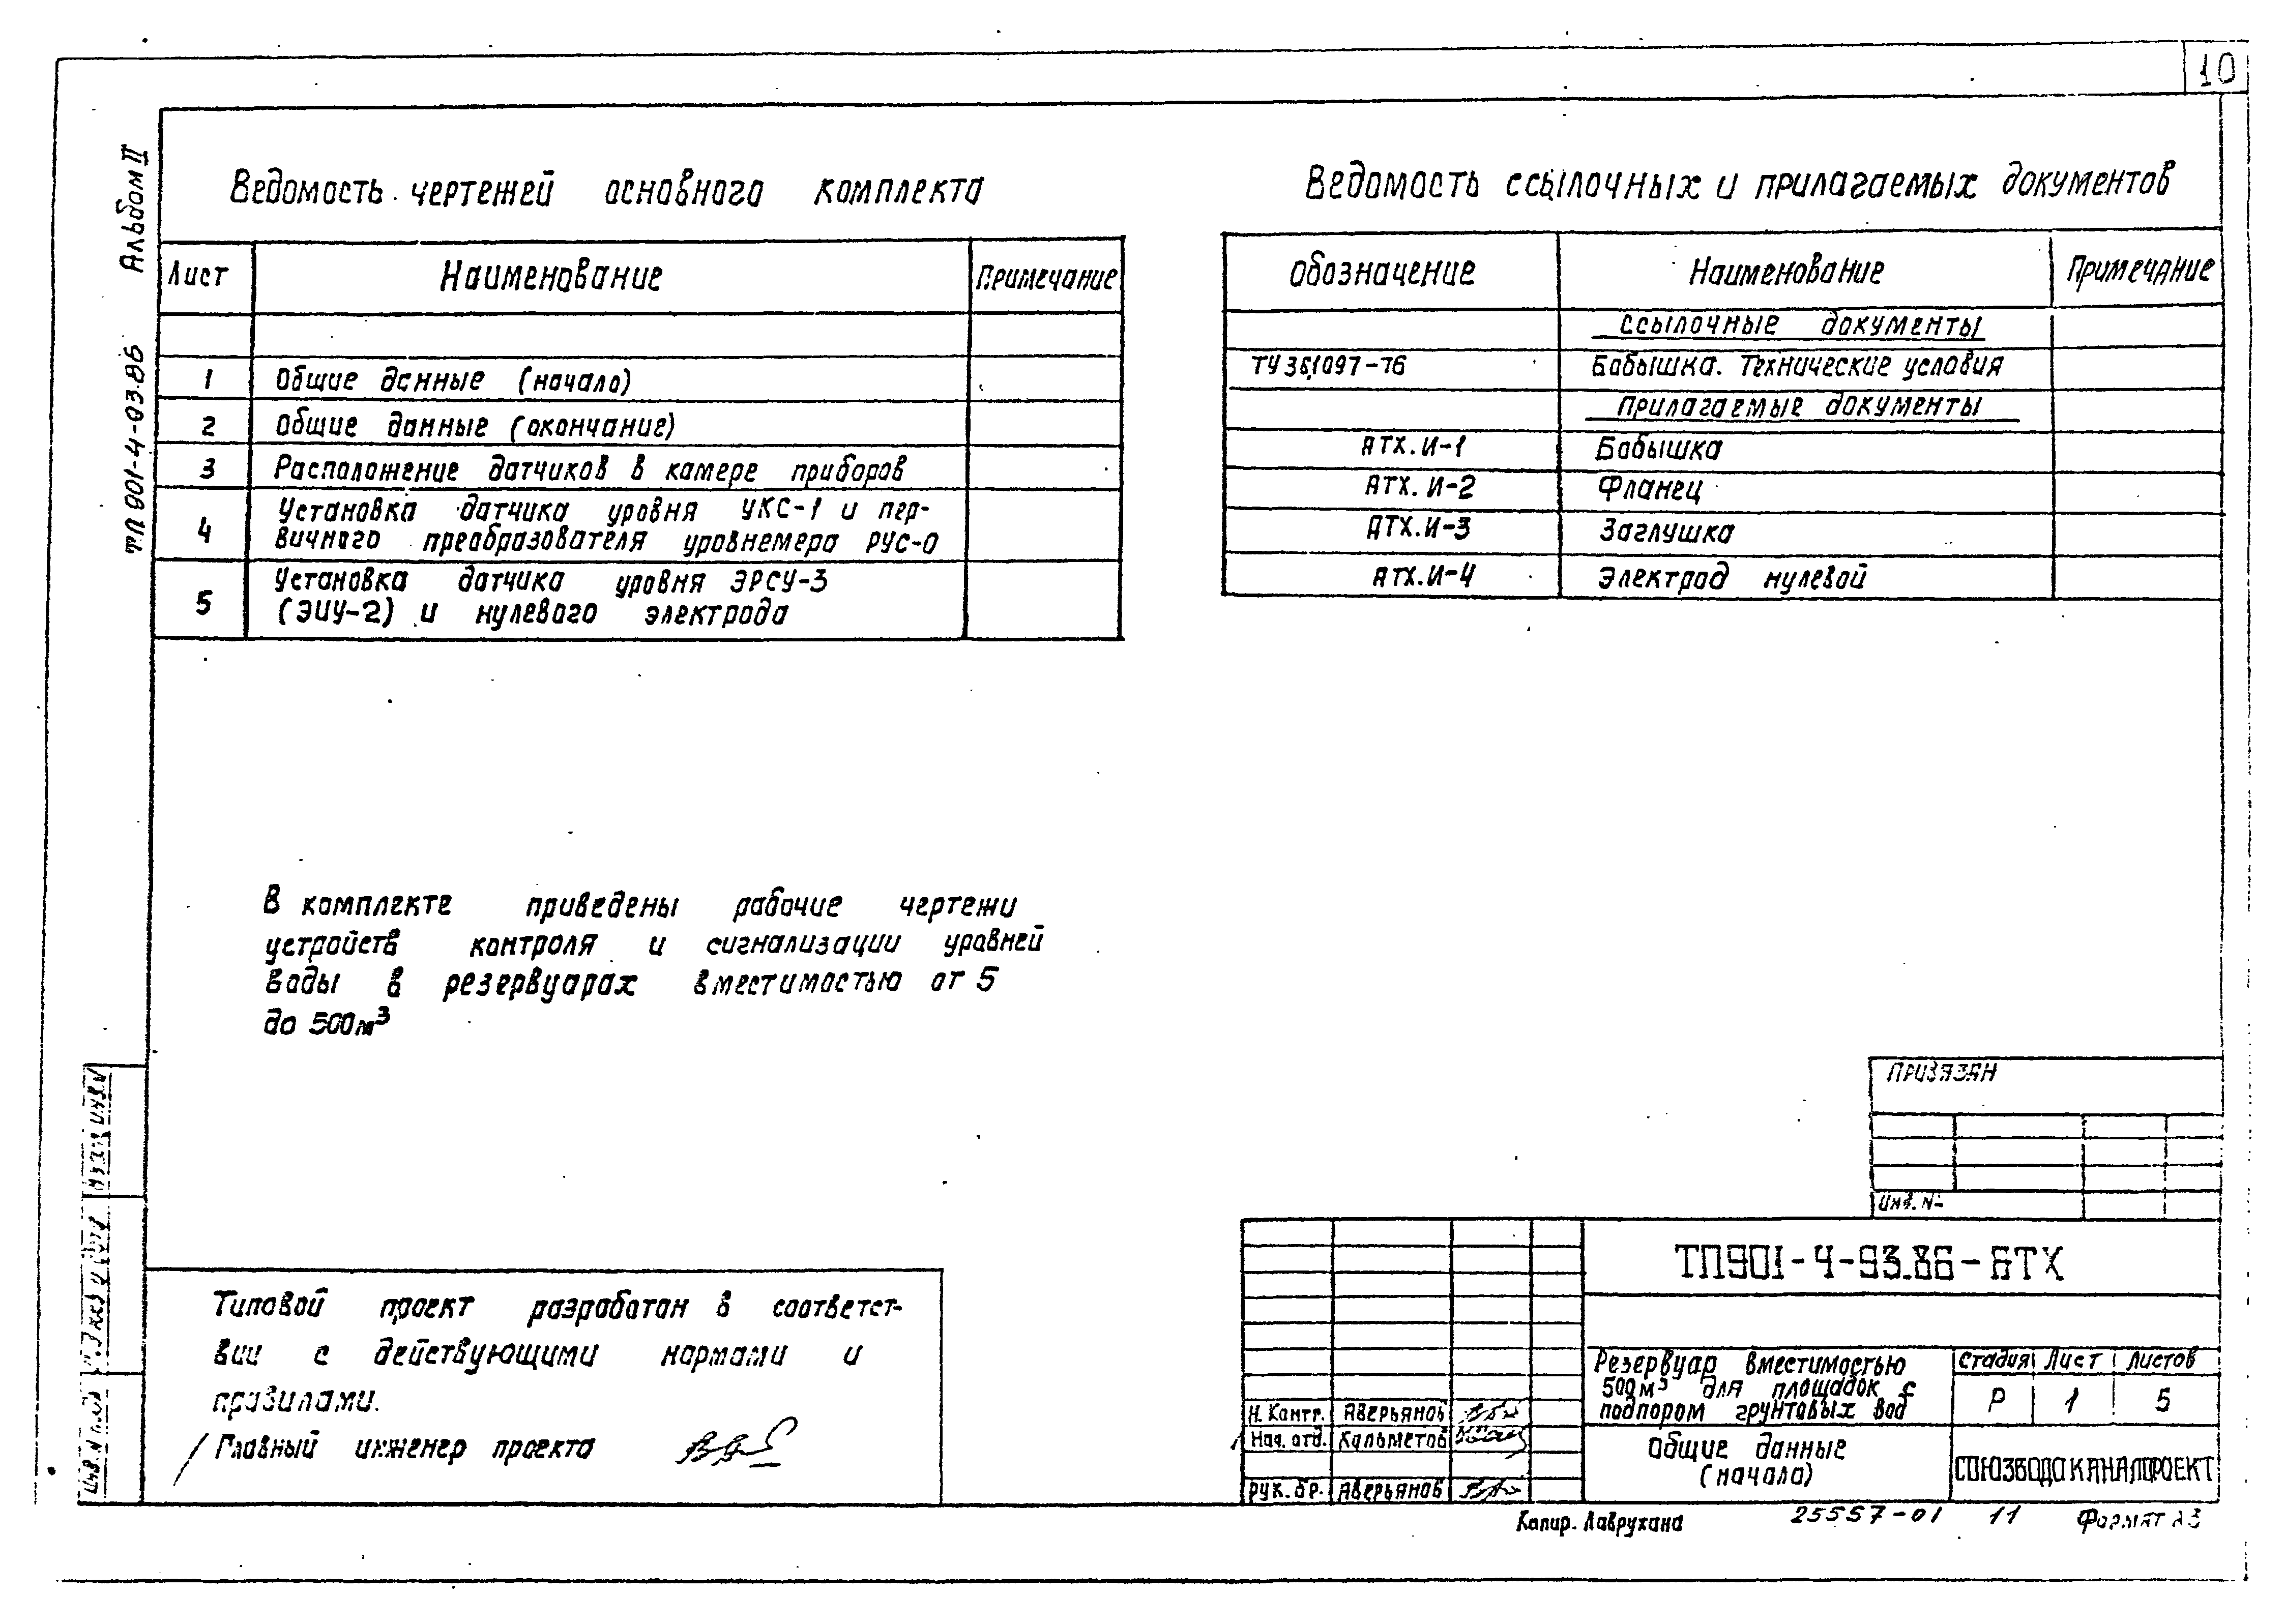 10
Альбом II
т.п 901-4-93.86
Ведомость чертежей основного комплекта
Лист Наименование Примечание
1 Общие данные (начало)
2 Общие данные (окончание)
3 Расположение датчиков в камере приборов
4 Установка датчика уровня УКС-1 и пер-
вичного преобразователя уровнемера РУС-0
5 Установка датчика уровня ЭРСУ-3
(ЭИУ-2) и нулевого электрода
Ведомость ссылочных и прилагаемых документов
Обозначение Наименование Примечание
Ссылочные документы
ТУ 36.1097-76 Бобышка. Технические условия
Прилагаемые документы
АТХ.И-1 Бобышка
АТХ.И-2 Фланец
АТХ.И-3 Заглушка
АТХ.И-4 Электрод нулевой
В комплекте приведены рабочие чертежи
устройств контроля и сигнализации уровней
воды в резервуарах вместимостью от 5
до 500м³
Типовой проект разработан в соответст-
вии с действующими нормами и
правилами.
Главный инженер проекта
Привязан
Инв. №
ТП901-4-93.86-АТХ
Резервуар вместимостью
500м³ для площадок с
подпором грунтовых вод
Стадия Лист Листов
Р 1 5
Общие данные
(начало)
СОЮЗВОДОКАНАЛПРОЕКТ
Н. Контр. Аверьянов
Нач. отд. Кальметов
Рук. бр. Аверьянов
Взам. инв. №
Инв. № подл.
Копир. Лаврухина
25557-01 11 Формат А3